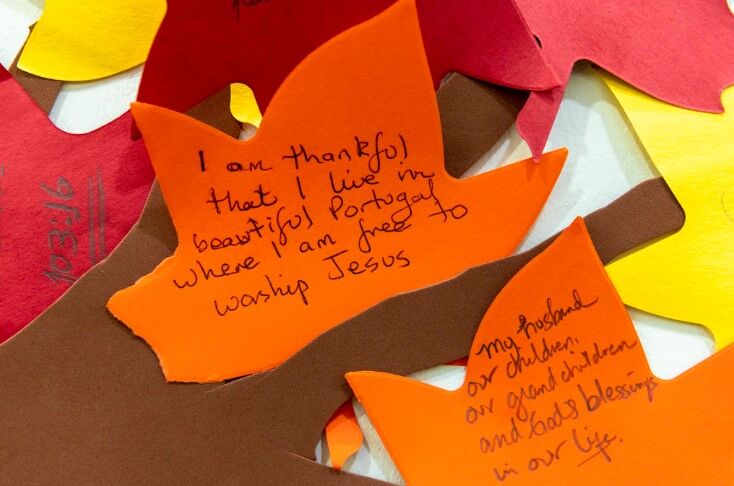 I am thankful
that I live in
beautiful Portugal
where I am free to
worship Jesus
My husband
our children,
our grandchildren
and Gods blessings
in our life.